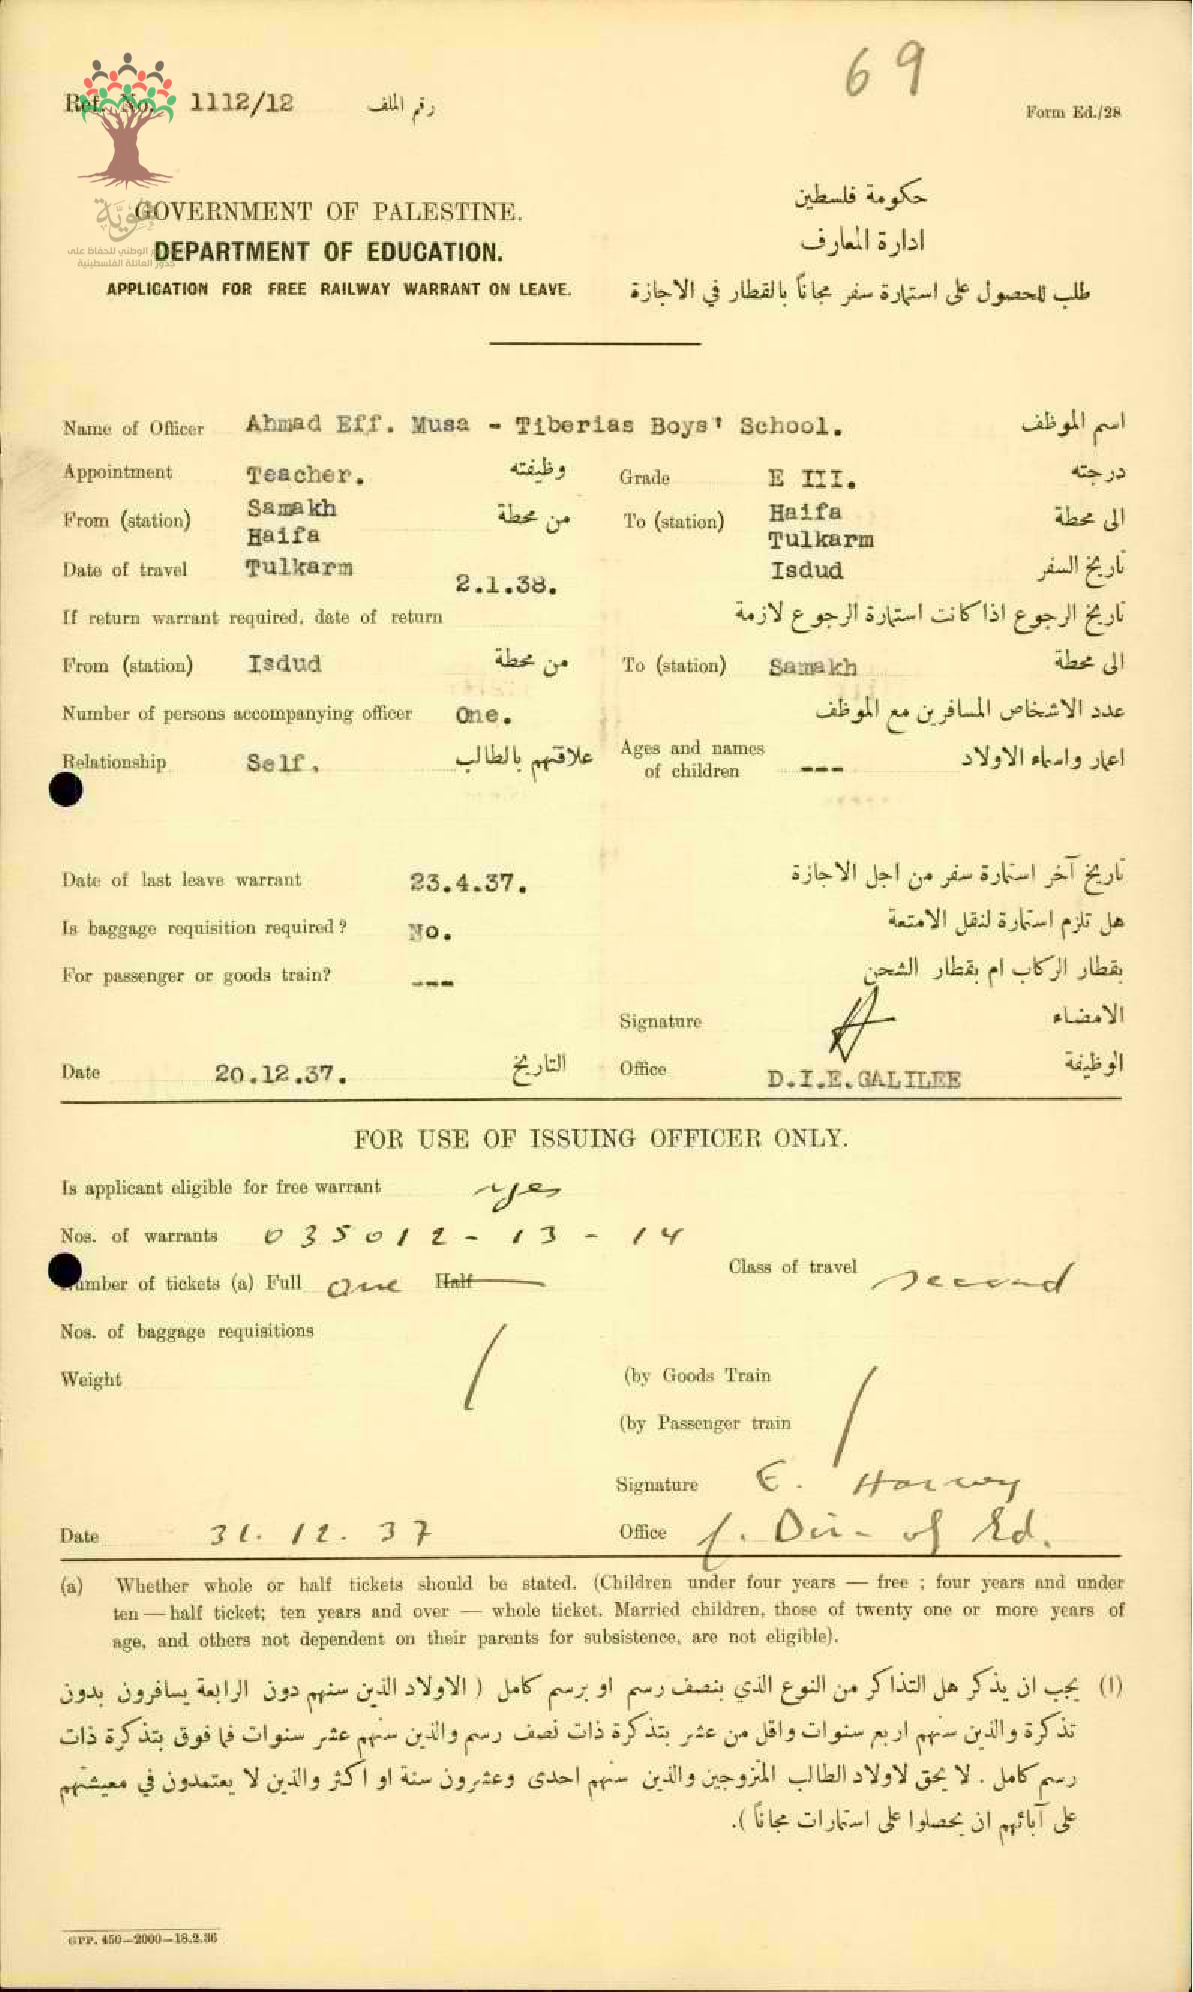 69
Ref. No. 1112/12 رقم الملف
Form Ed./28
هوية
الوطني للحفاظ على
جذور العائلة الفلسطينية
GOVERNMENT OF PALESTINE.
DEPARTMENT OF EDUCATION.
APPLICATION FOR FREE RAILWAY WARRANT ON LEAVE.
حكومة فلسطين
ادارة المعارف
طلب للحصول على استمارة سفر مجاناً بالقطار في الاجازة
Name of Officer Ahmad Eff. Musa - Tiberias Boys' School. اسم الموظف
Appointment Teacher. وظيفته Grade E III. درجته
From (station) Samakh من محطة To (station) Haifa الى محطة
Haifa Tulkarm
Date of travel Tulkarm 2.1.38. Isdud تاريخ السفر
If return warrant required, date of return تاريخ الرجوع اذا كانت استمارة الرجوع لازمة
From (station) Isdud من محطة To (station) Samakh الى محطة
Number of persons accompanying officer One. عدد الاشخاص المسافرين مع الموظف
Relationship Self. علاقتهم بالطالب Ages and names of children --- اعمار واسماء الاولاد
Date of last leave warrant 23.4.37. تاريخ آخر استمارة سفر من اجل الاجازة
Is baggage requisition required? No. هل تلزم استمارة لنقل الامتعة
For passenger or goods train? --- بقطار الركاب ام بقطار الشحن
Signature الامضاء
Date 20.12.37. التاريخ Office D.I.E. GALILEE الوظيفة
FOR USE OF ISSUING OFFICER ONLY.
Is applicant eligible for free warrant yes
Nos. of warrants 035012 - 13 - 14
Number of tickets (a) Full one Half Class of travel second
Nos. of baggage requisitions
Weight (by Goods Train
(by Passenger train
Signature E. Harvey
Date 31.12.37 Office f. Dir. of Ed.
(a) Whether whole or half tickets should be stated. (Children under four years — free ; four years and under
ten — half ticket; ten years and over — whole ticket. Married children, those of twenty one or more years of
age, and others not dependent on their parents for subsistence, are not eligible).
(١) يجب ان يذكر هل التذاكر من النوع الذي بنصف رسم او برسم كامل ( الاولاد الذين سنهم دون الرابعة يسافرون بدون
تذكرة والذين سنهم اربع سنوات واقل من عشر بتذكرة ذات نصف رسم والذين سنهم عشر سنوات فما فوق بتذكرة ذات
رسم كامل . لا يحق لاولاد الطالب المتزوجين والذين سنهم احدى وعشرون سنة او اكثر والذين لا يعتمدون في معيشتهم
على آبائهم ان يحصلوا على استمارات مجاناً ).
GPP. 450—2000—18.2.36